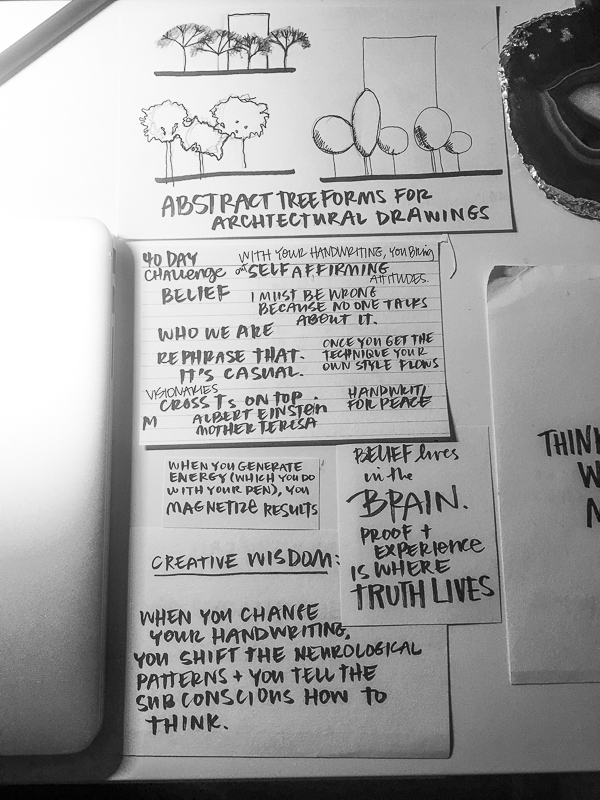 ABSTRACT TREE FORMS FOR
ARCHTECTURAL DRAWINGS
40 DAY
CHALLENGE
WITH YOUR HANDWRITING, YOU BRING
out SELF AFFIRMING
ATTITUDES.
BELIEF
I MUST BE WRONG
BECAUSE NO ONE TALKS
ABOUT IT.
WHO WE ARE
REPHRASE THAT.
IT'S CASUAL.
ONCE YOU GET THE
TECHNIQUE YOUR
OWN STYLE FLOWS
VISIONARIES
CROSS Ts ON TOP.
M ALBERT EINSTEIN
MOTHER TERESA
HANDWRITE
FOR PEACE
WHEN YOU GENERATE
ENERGY (WHICH YOU DO
WITH YOUR PEN), YOU
MAGNETIZE RESULTS
BELIEF lives
in the
BRAIN.
PROOF +
EXPERIENCE
IS WHERE
TRUTH LIVES
CREATIVE WISDOM:
WHEN YOU CHANGE
YOUR HANDWRITING,
YOU SHIFT THE NEUROLOGICAL
PATTERNS + YOU TELL THE
SUBCONSCIOUS HOW TO
THINK.
THINK